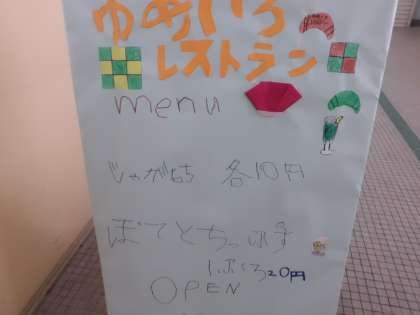 ゆめいろ
レストラン
menu
じゃがもち 各10円
ぽてとちっぷす
1ふくろ20円
OPEN